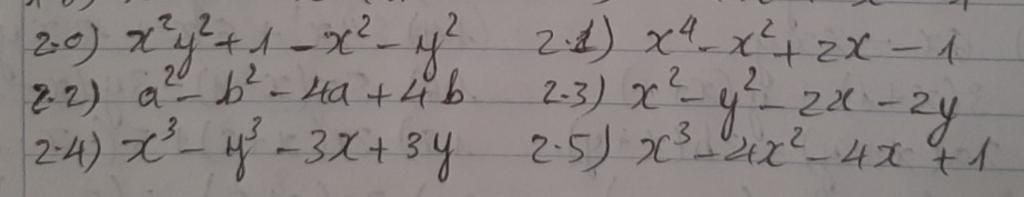 2.0) x²y² + 1 - x² - y² 2.1) x⁴ - x² + 2x - 1
2.2) a² - b² - 4a + 4b 2.3) x² - y² - 2x - 2y
2.4) x³ - y³ - 3x + 3y 2.5) x³ - 4x² - 4x + 1